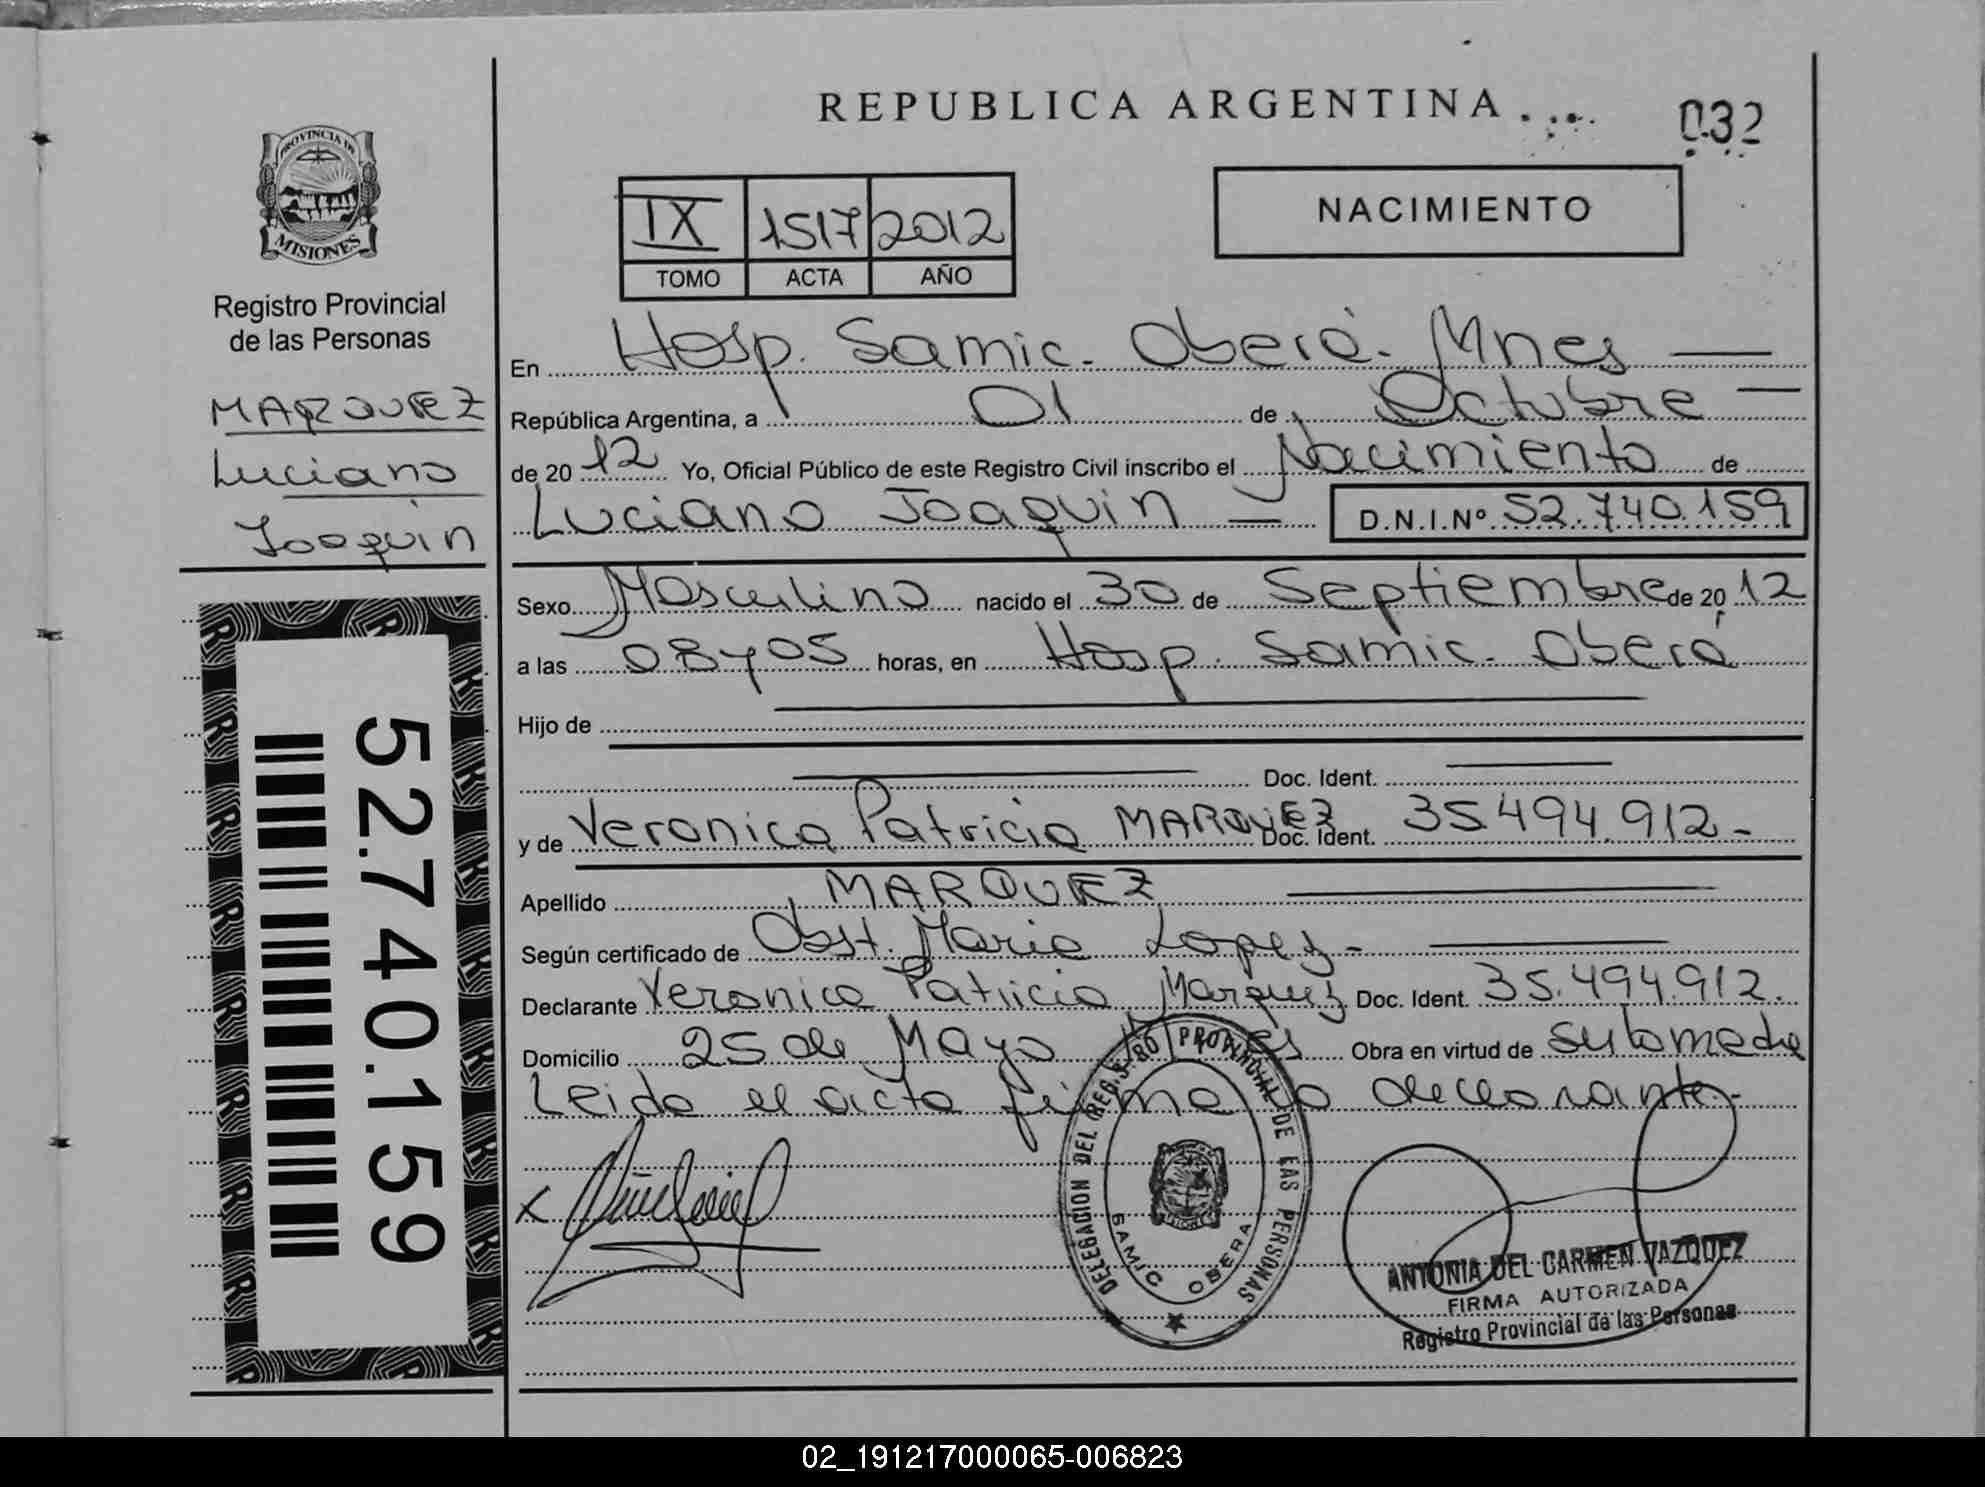 REPUBLICA ARGENTINA
032
PROVINCIA DE
MISIONES
Registro Provincial
de las Personas
MARQUEZ
Luciano
Joaquin
52.740.159
IX 1517 2012
TOMO ACTA AÑO
NACIMIENTO
En Hosp. Samic. Oberá. Mnes
República Argentina, a 01 de Octubre
de 2012 Yo, Oficial Público de este Registro Civil inscribo el Nacimiento de
Luciano Joaquin D.N.I.Nº 52.740.159
Sexo Masculino nacido el 30 de Septiembre de 2012
a las 08 y 05 horas, en Hosp. Samic. Oberá
Hijo de
Doc. Ident.
y de Veronica Patricia MARQUEZ Doc. Ident. 35.494.912-
Apellido MARQUEZ
Según certificado de Obst. Maria Lopez-
Declarante Veronica Patricia Marquez Doc. Ident. 35.494.912.
Domicilio 25 de Mayo Obra en virtud de
Leida el acta firma la declarante.-
X
DELEGACION DEL REGISTRO PROVINCIAL DE LAS PERSONAS
SAMIC OBERA
MISIONES
ANTONIA DEL CARMEN VAZQUEZ
FIRMA AUTORIZADA
Registro Provincial de las Personas
02_191217000065-006823